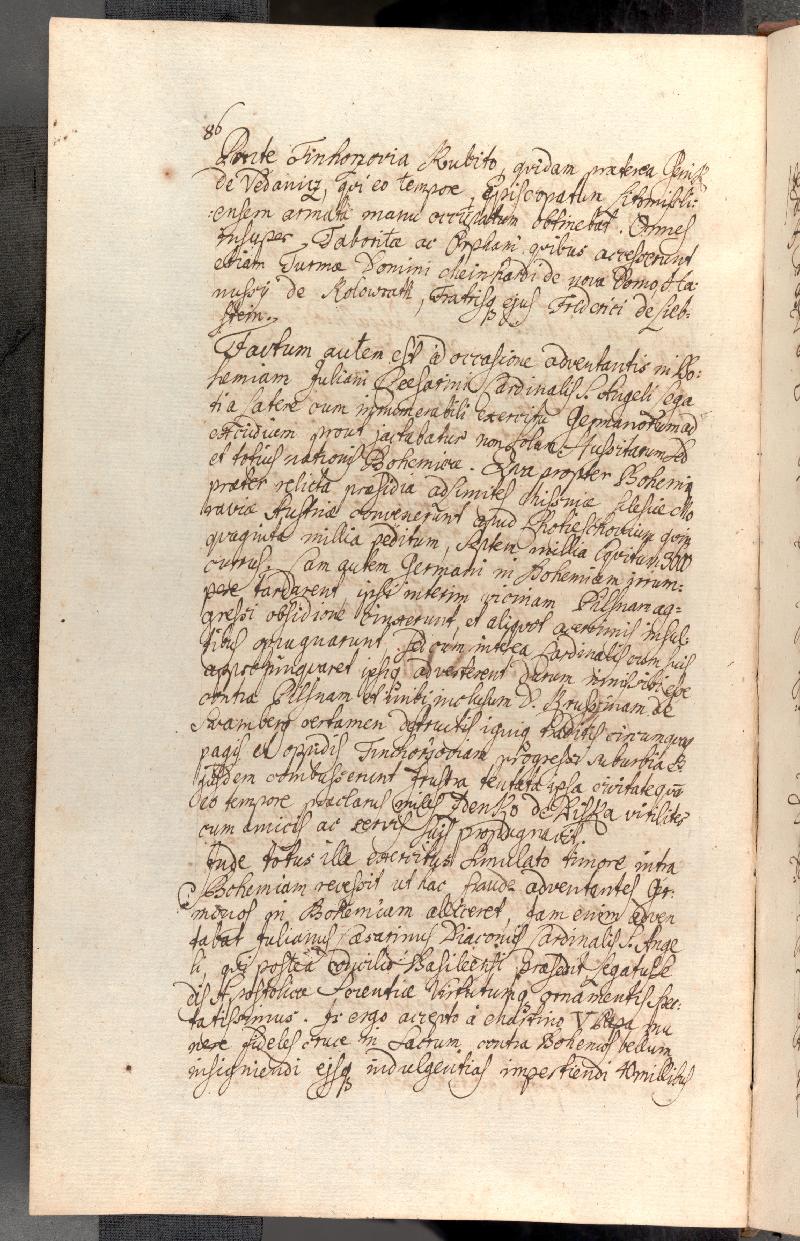 86
Ponte Tinhorzovia Rubito, quidam præterea Geisk
de Vedanicz, qui eo tempore Episcopatum Litomisli-
:ensem armata manu occupatum obtinebat. Omnes
insuper Taboritæ ac Orphani quibus accesserunt
etiam Turmæ Domini Meinhardi de nova Domo, Ha:
nussy de Kolowrath, fratrisq ejus Friderici de Lieb:
stein.
Factum autem est id occasione adventantis in Bo:
hemiam Juliani Cæsarini Cardinalis S. Angeli Lega
ti a Latere cum innumerabili exercitu Germanorum ad
excidium prout jactabatur non solum Hussitarum sed
et totius nationis Bohemicæ. Qua propter Bohemi
præter relicta præsidia ad limites Misniæ Silesiæ Mo
raviæ Austriæ convenerunt apud Chotieschovium quin
quaginta millia peditum, septem millia Equitum 3000
currus. Cum autem Germani in Bohemiam irrum:
pere tardarent ipsi interim vicinam Pilsnam ag-
gressi obsidione cinxerunt, et aliquot acerrimis insul-
tibus opugnarunt, sed cum interea Cardinalis cum suis
appropinquaret ipsiq adverterent durum nimis sibi esse
contra Pilsnam et inibi inclusum D. Brussinam de
Swamberg certamen destructis igniq traditis circumquaq
pagis et opidis Tinhorzoviam progressi suburbia e-
jusdem combusserunt frustra tentata ipsa civitate quâ
eo tempore præclarus miles Zdenko de Ziska viriliter
cum amicis ac servis suis propugnavit.
Inde totus ille exercitus simulato timore intra
Bohemiam recessit ut hac fraude adventantes Ger:
manos in Bohemiam alliceret, jam enim adven
tabat Julianus Cæsarinus Diaconus Cardinalis S. Ange
li, qui postea Concilio Basileensi præsedit Legatus se
dis Apostolicæ scientiæ virtutumq ornamentis spec-
tatissimus. Is ergo accepto a Martino V Papa mu
nere fideles cruce in sacrum contra Bohemos bellum
insigniendi ejsq indulgentias impertiendi 40 millibus